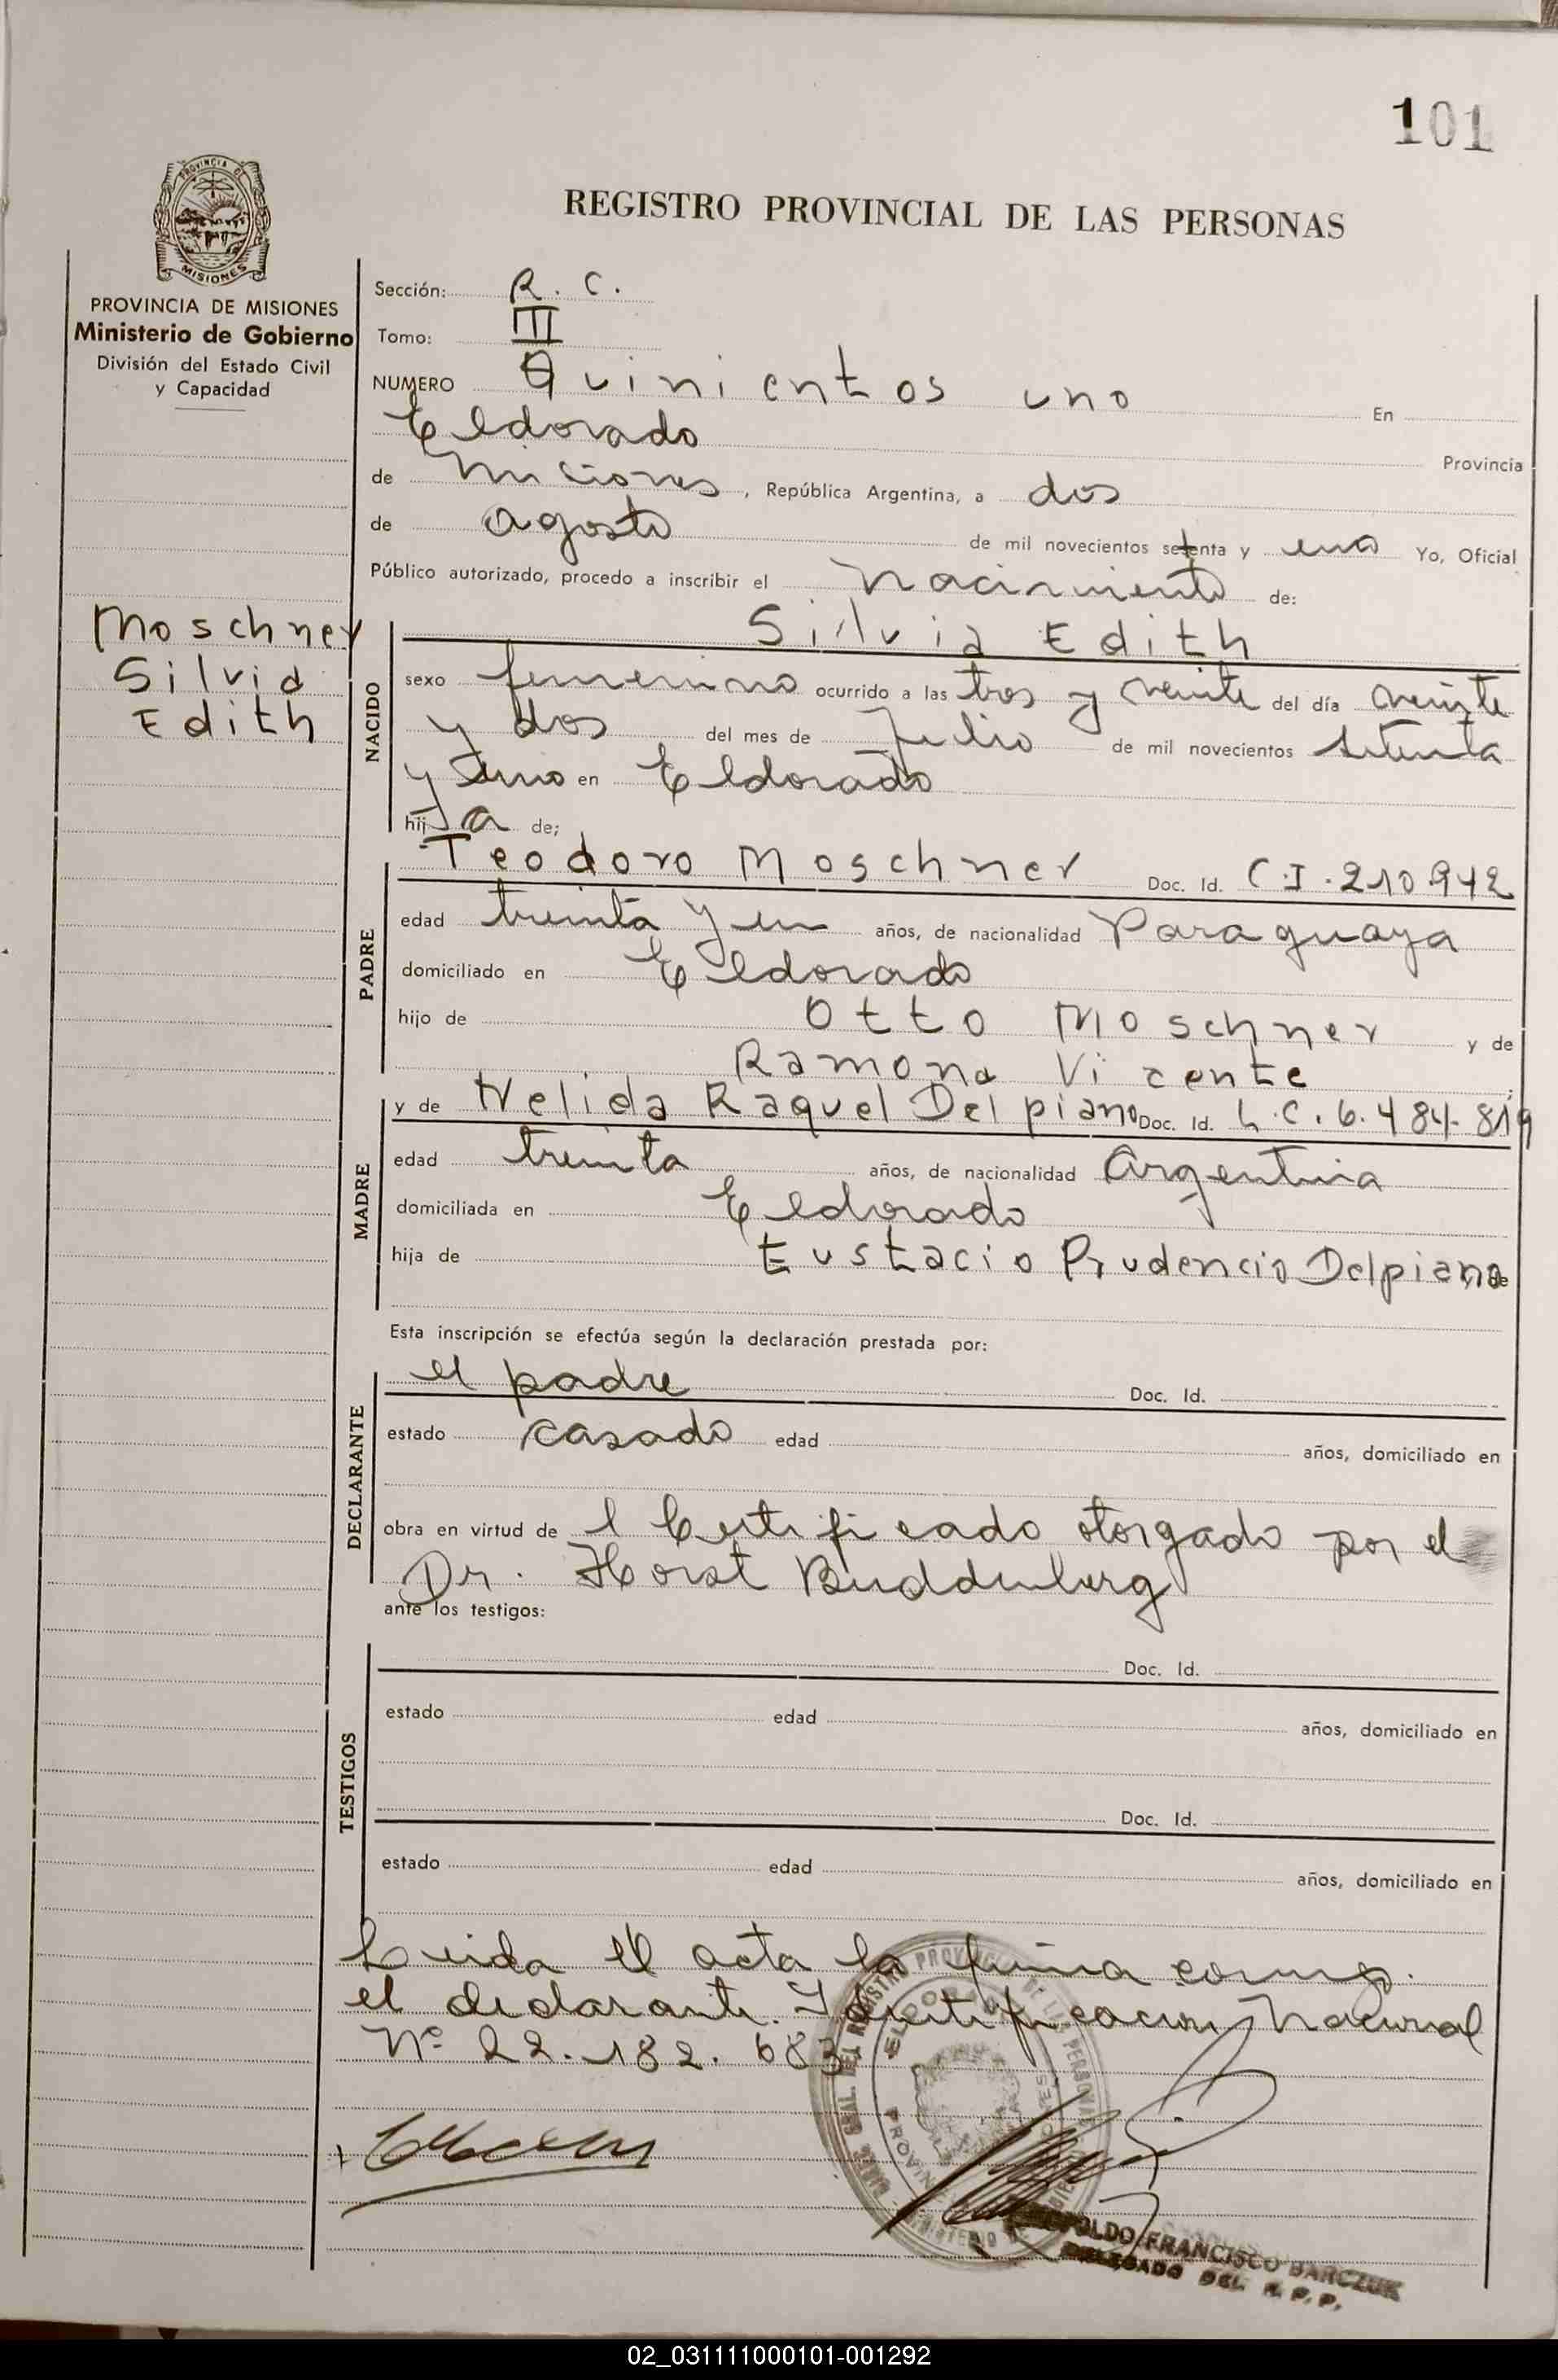 101
PROVINCIA DE
MISIONES
REGISTRO PROVINCIAL DE LAS PERSONAS
PROVINCIA DE MISIONES
Ministerio de Gobierno
División del Estado Civil
y Capacidad
Sección: R. C.
Tomo: III
NUMERO Quinientos uno En
Eldorado Provincia
de Miciones, República Argentina, a dos
de agosto de mil novecientos setenta y uno Yo, Oficial
Público autorizado, procedo a inscribir el Nacimiento de:
Moschner
Silvia
Edith
NACIDO
Silvia Edith
sexo femenino ocurrido a las tres y veinte del día veinte
y dos del mes de Julio de mil novecientos setenta
y uno en Eldorado
hija de;
PADRE
Teodoro Moschner Doc. Id. C.I. 210.942
edad treinta y un años, de nacionalidad Paraguaya
domiciliado en Eldorado
hijo de Otto Moschner y de
Ramona Vicente
MADRE
y de Nelida Raquel Delpiano Doc. Id. L.C. 6.484.819
edad treinta años, de nacionalidad Argentina
domiciliada en Eldorado
hija de Eustacio Prudencio Delpiano
Esta inscripción se efectúa según la declaración prestada por:
DECLARANTE
el padre Doc. Id.
estado casado edad años, domiciliado en
obra en virtud de l Certificado otorgado por el
Dr. Horst Buddenberg
ante los testigos:
TESTIGOS
Doc. Id.
estado edad años, domiciliado en
Doc. Id.
estado edad años, domiciliado en
Leida el acta la firma conmigo.
el declarante. Identificacion Nacional
Nº 22.182.683
REGISTRO PROVINCIAL DE LAS PERSONAS
ELDORADO
FRANCISCO BARCZUK
DELEGADO DEL R. P. P.
02_031111000101-001292